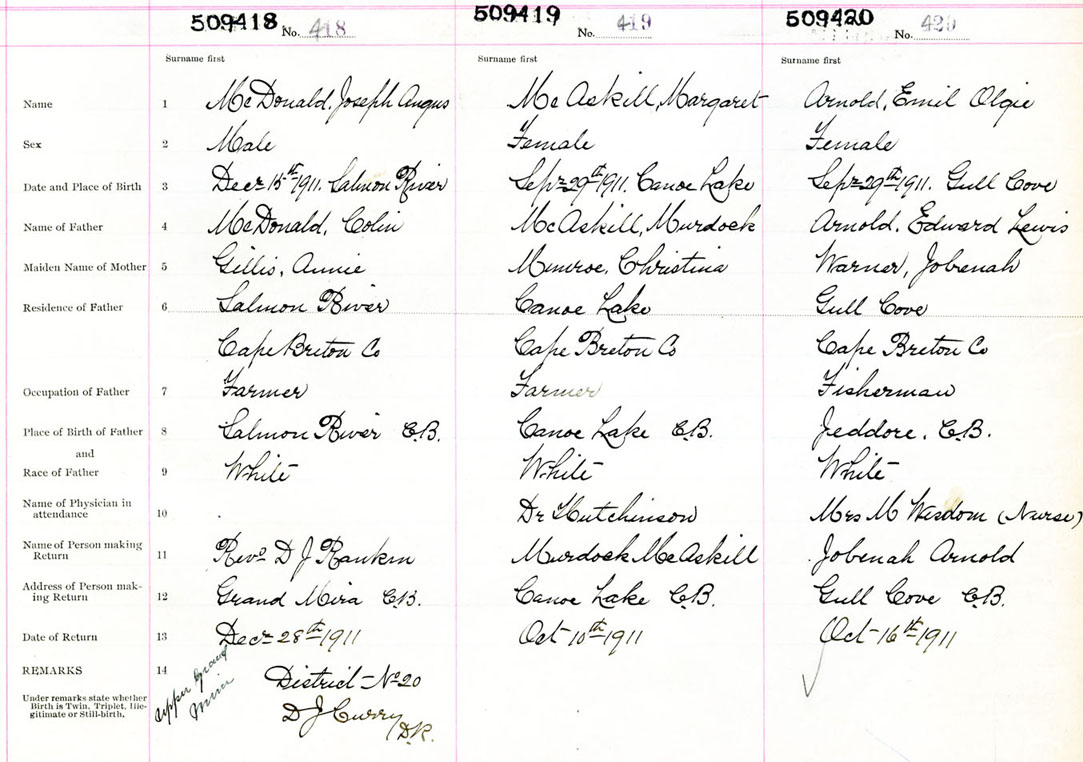 509418 No. 418 509419 No. 419 509420 No. 420
Surname first Surname first Surname first
Name 1 McDonald, Joseph Angus McAskill, Margaret Arnold, Emil Olgie
Sex 2 Male Female Female
Date and Place of Birth 3 Decr 15th 1911. Salmon River Sepr 29th 1911. Canoe Lake Sepr 29th 1911. Gull Cove
Name of Father 4 McDonald, Colin McAskill, Murdock Arnold, Edward Lewis
Maiden Name of Mother 5 Gillis, Annie Munroe, Christina Warner, Jobenah
Residence of Father 6 Salmon River Canoe Lake Gull Cove
Cape Breton Co Cape Breton Co Cape Breton Co
Occupation of Father 7 Farmer Farmer Fisherman
Place of Birth of Father 8 Salmon River C.B. Canoe Lake C.B. Jeddore, C.B.
and
Race of Father 9 White White White
Name of Physician in
attendance 10 Dr Hutchinson Mrs M Wisdom (Nurse)
Name of Person making
Return 11 Revd D J Rankin Murdock McAskill Jobenah Arnold
Address of Person mak-
ing Return 12 Grand Mira C.B. Canoe Lake C.B. Gull Cove C.B.
Date of Return 13 Decr 28th 1911 Oct 10th 1911 Oct 16th 1911
REMARKS 14 District No 20
Under remarks state whether
Birth is Twin, Triplet, Ille-
gitimate or Still-birth.
Upper Grand
Mira
D J Curry
D.R.